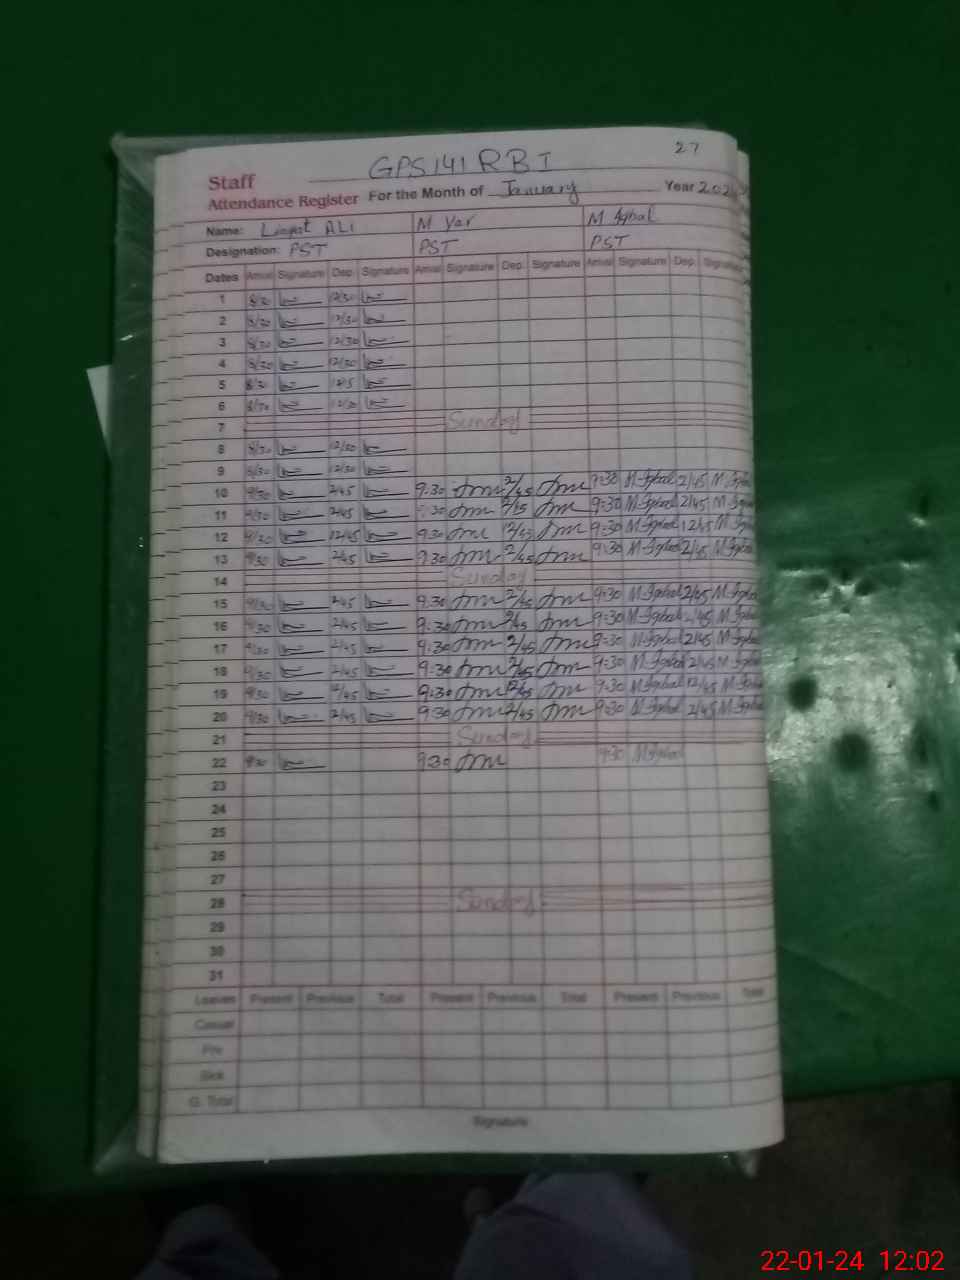 27
GPS 141 RB I
Staff
Attendance Register For the Month of January Year 202
Name: Liaqat ALi M Yar M Iqbal
Designation: PST PST PST
Dates Arrival Signature Dep. Signature Arrival Signature Dep. Signature Arrival Signature Dep. Signature
1 8/30 12/30
2 8/30 12/30
3 8/30 12/30
4 8/30 12/30
5 8/30
6 8/30 12/30
7 Sunday
8 8/30 12/30
9 8/30 12/30
10 9/30 2/45 9:30 2/45 9:30 M.Iqbal 2/45 M.Iqbal
11 9/30 2/45 9:30 2/45 9:30 M.Iqbal 2/45 M.Iqbal
12 9/30 12/45 9:30 12/45 9:30 M.Iqbal 12/45 M.Iqbal
13 9/30 2/45 9:30 2/45 9:30 M.Iqbal 2/45 M.Iqbal
14 Sunday
15 9/30 2/45 9:30 2/45 9:30 M.Iqbal 2/45 M.Iqbal
16 9/30 2/45 9:30 2/45 9:30 M.Iqbal 2/45 M.Iqbal
17 9/30 2/45 9:30 2/45 9:30 M.Iqbal 2/45 M.Iqbal
18 9/30 2/45 9:30 2/45 9:30 M.Iqbal 2/45 M.Iqbal
19 9/30 12/45 9:30 12/45 9:30 M.Iqbal 12/45 M.Iqbal
20 9/30 2/45 9:30 2/45 9:30 M.Iqbal 2/45 M.Iqbal
21 Sunday
22 9/30 9:30 9:30 M.Iqbal
23
24
25
26
27
28 Sunday
29
30
31
Leaves Present Previous Total Present Previous Total Present Previous Total
Casual
Prv
Sick
G. Total
Signature
22-01-24 12:02